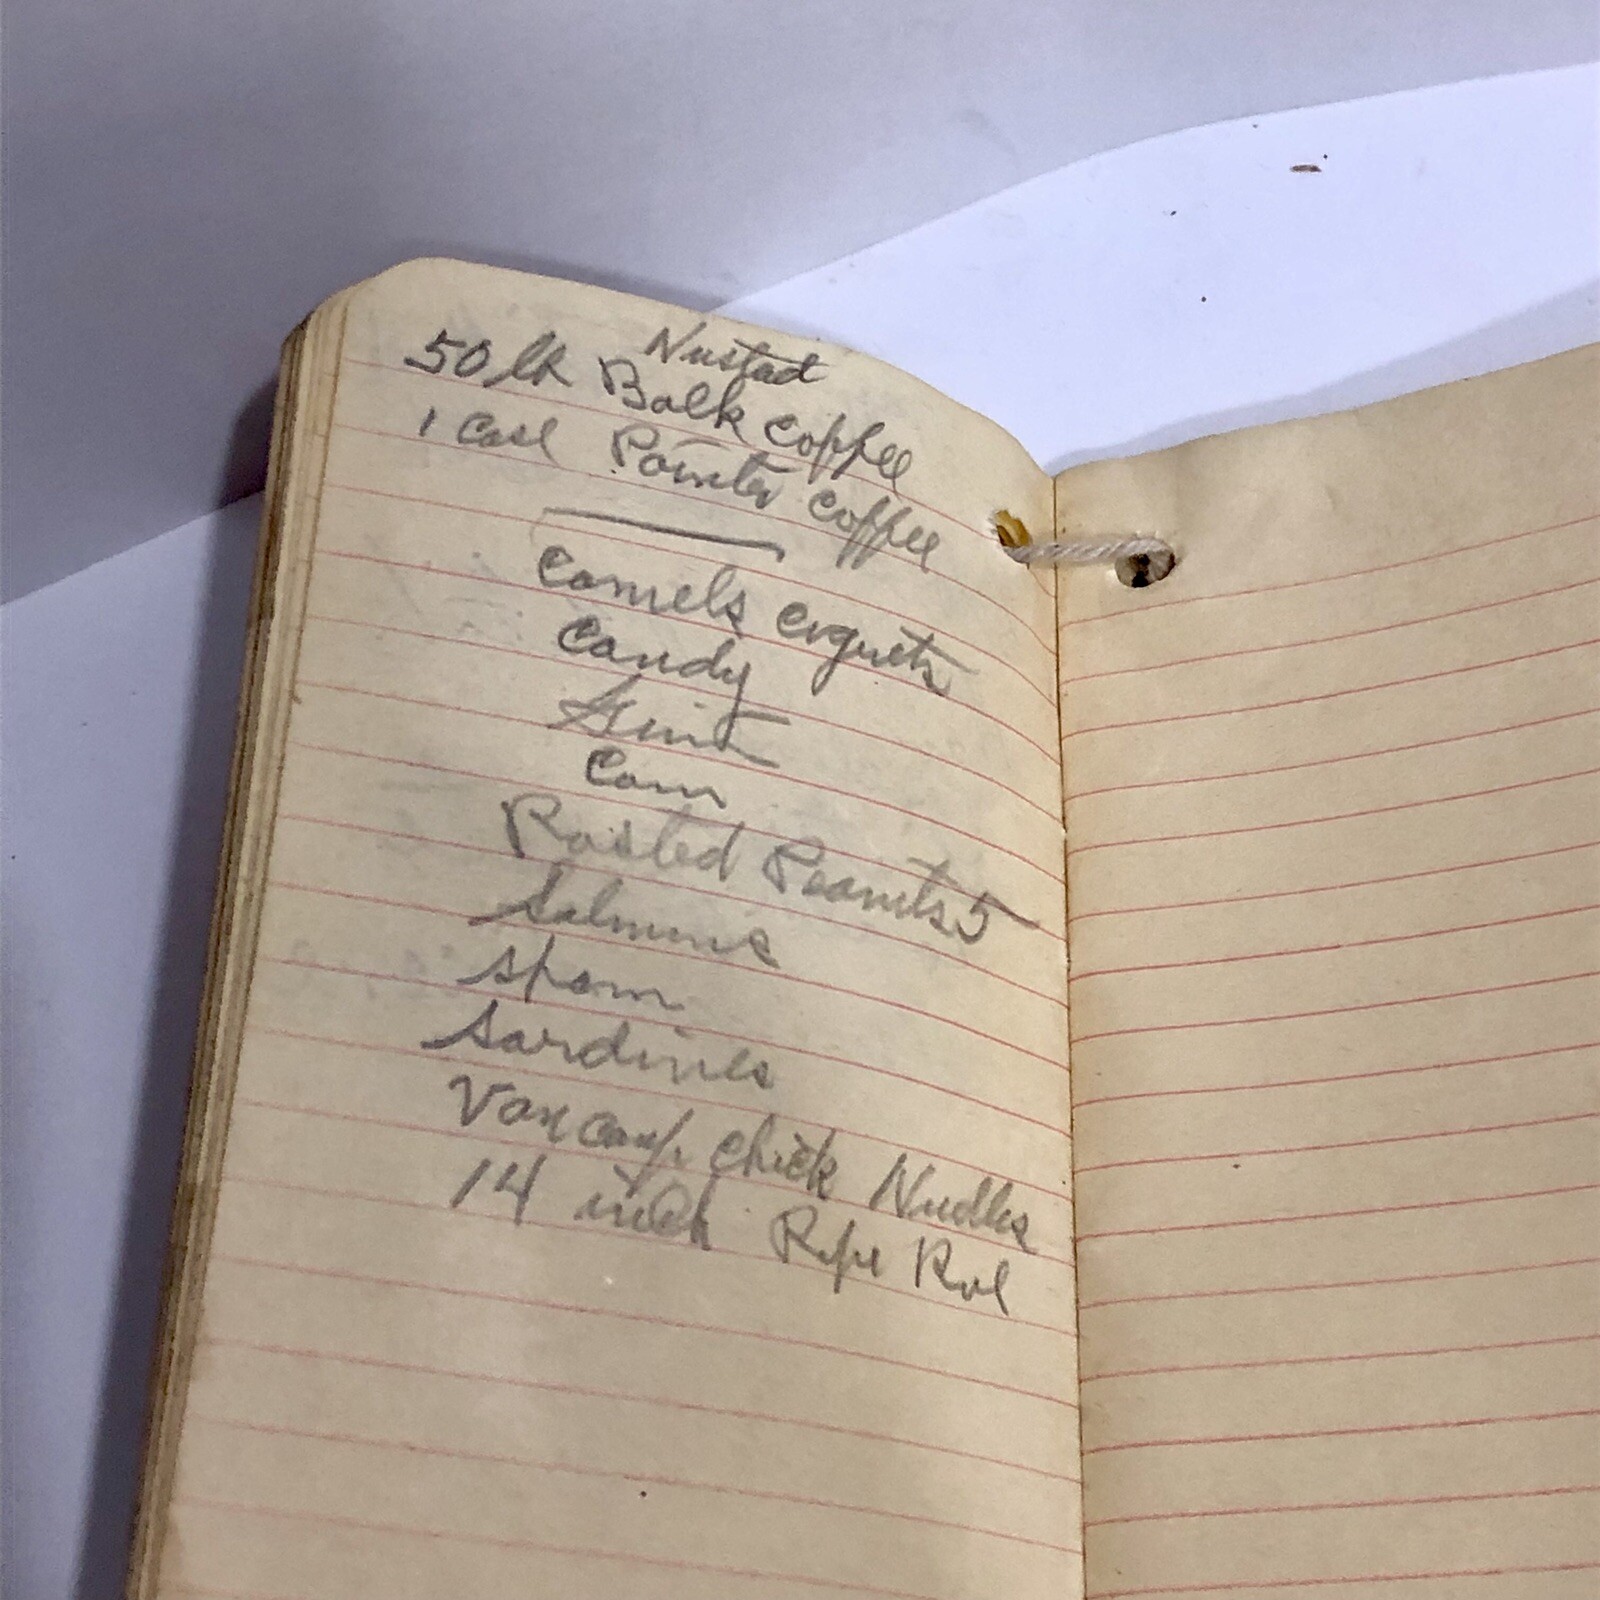 Nustad
50 lb Balk coffee
1 Case Pointer coffee
Camels cigrets
Candy
Corn
Rosted Peanuts 5
Salmons
Spam
Sardines
Van Camp Chick Nudles
14 inch Rol